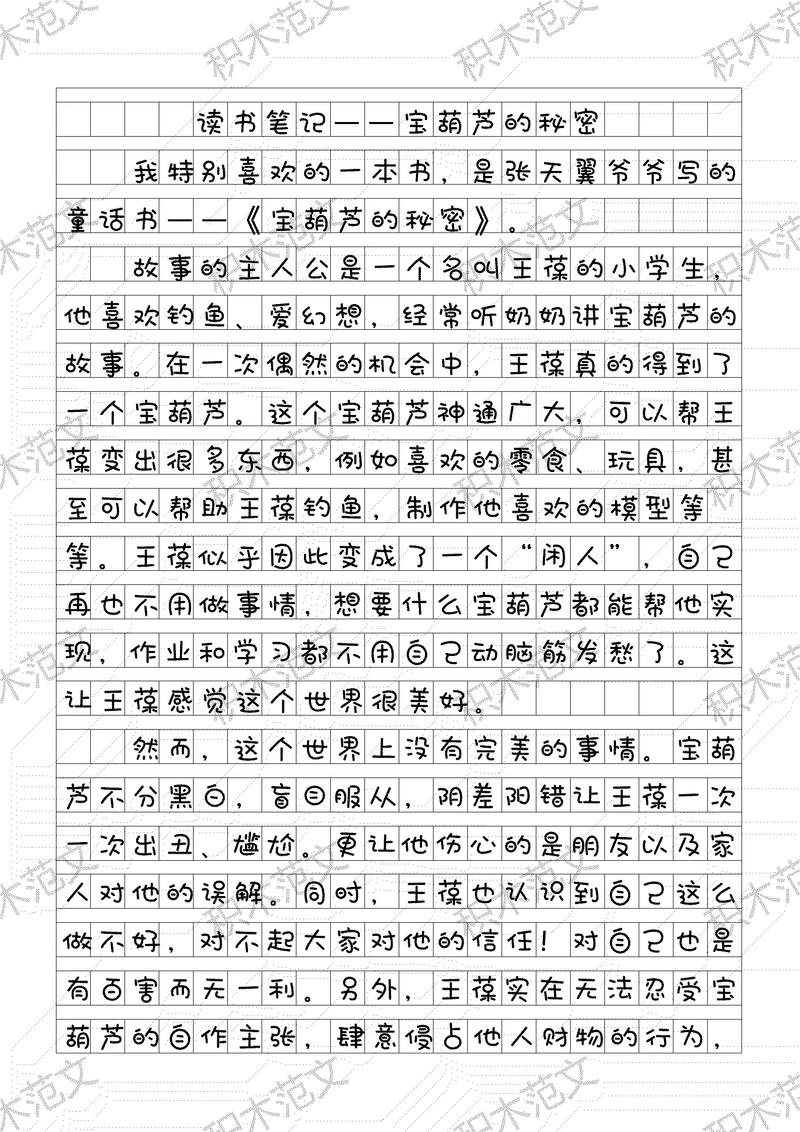 读书笔记——宝葫芦的秘密
我特别喜欢的一本书，是张天翼爷爷写的
童话书——《宝葫芦的秘密》。
故事的主人公是一个名叫王葆的小学生，
他喜欢钓鱼、爱幻想，经常听奶奶讲宝葫芦的
故事。在一次偶然的机会中，王葆真的得到了
一个宝葫芦。这个宝葫芦神通广大，可以帮王
葆变出很多东西，例如喜欢的零食、玩具，甚
至可以帮助王葆钓鱼，制作他喜欢的模型等
等。王葆似乎因此变成了一个“闲人”，自己
再也不用做事情，想要什么宝葫芦都能帮他实
现，作业和学习都不用自己动脑筋发愁了。这
让王葆感觉这个世界很美好。
然而，这个世界上没有完美的事情。宝葫
芦不分黑白，盲目服从，阴差阳错让王葆一次
一次出丑、尴尬。更让他伤心的是朋友以及家
人对他的误解。同时，王葆也认识到自己这么
做不好，对不起大家对他的信任！对自己也是
有百害而无一利。另外，王葆实在无法忍受宝
葫芦的自作主张，肆意侵占他人财物的行为，
积木范文